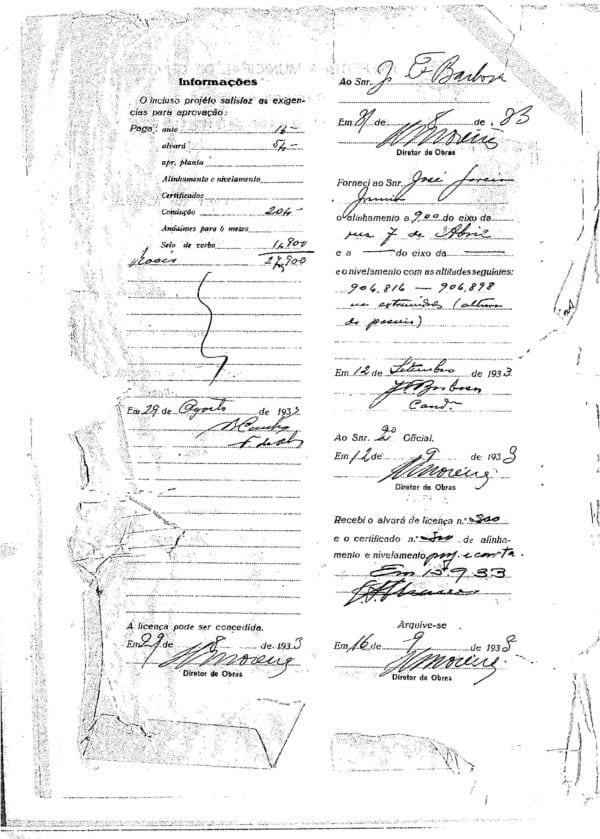 Informações
O incluso projéto satisfaz as exigen-
cias para aprovação:
Paga: auto 1$-
alvará 5$-
apr. planta
Alinhamento e nivelamento
Certificados
Condução 20$-
Andaimes para 6 mezes
Selo de verba 1$900
27$900
Em 29 de Agosto de 193
A licença pode ser concedida.
Em 29 de 8 de 1933
H Moreira
Diretor de Obras
Ao Snr. J F Barbosa
Em 31 de 8 de 33
H Moreira
Diretor de Obras
Forneci ao Snr. José
o alinhamento a 9,00 do eixo da
rua 7 de Abril
e a do eixo da
e o nivelamento com as altitudes seguintes:
904.816 — 906.898
nas extremidades (altura
do passeio)
Em 12 de Setembro de 1933
J F Barbosa
Cond.
Ao Snr. 2º Oficial.
Em 12 de 9 de 1933
H Moreira
Diretor de Obras
Recebi o alvará de licença n.º 300
e o certificado n.º de alinha-
mento e nivelamento proj. e conta.
Em 15 9 33
Arquive-se
Em 16 de 9 de 1933
H Moreira
Diretor de Obras